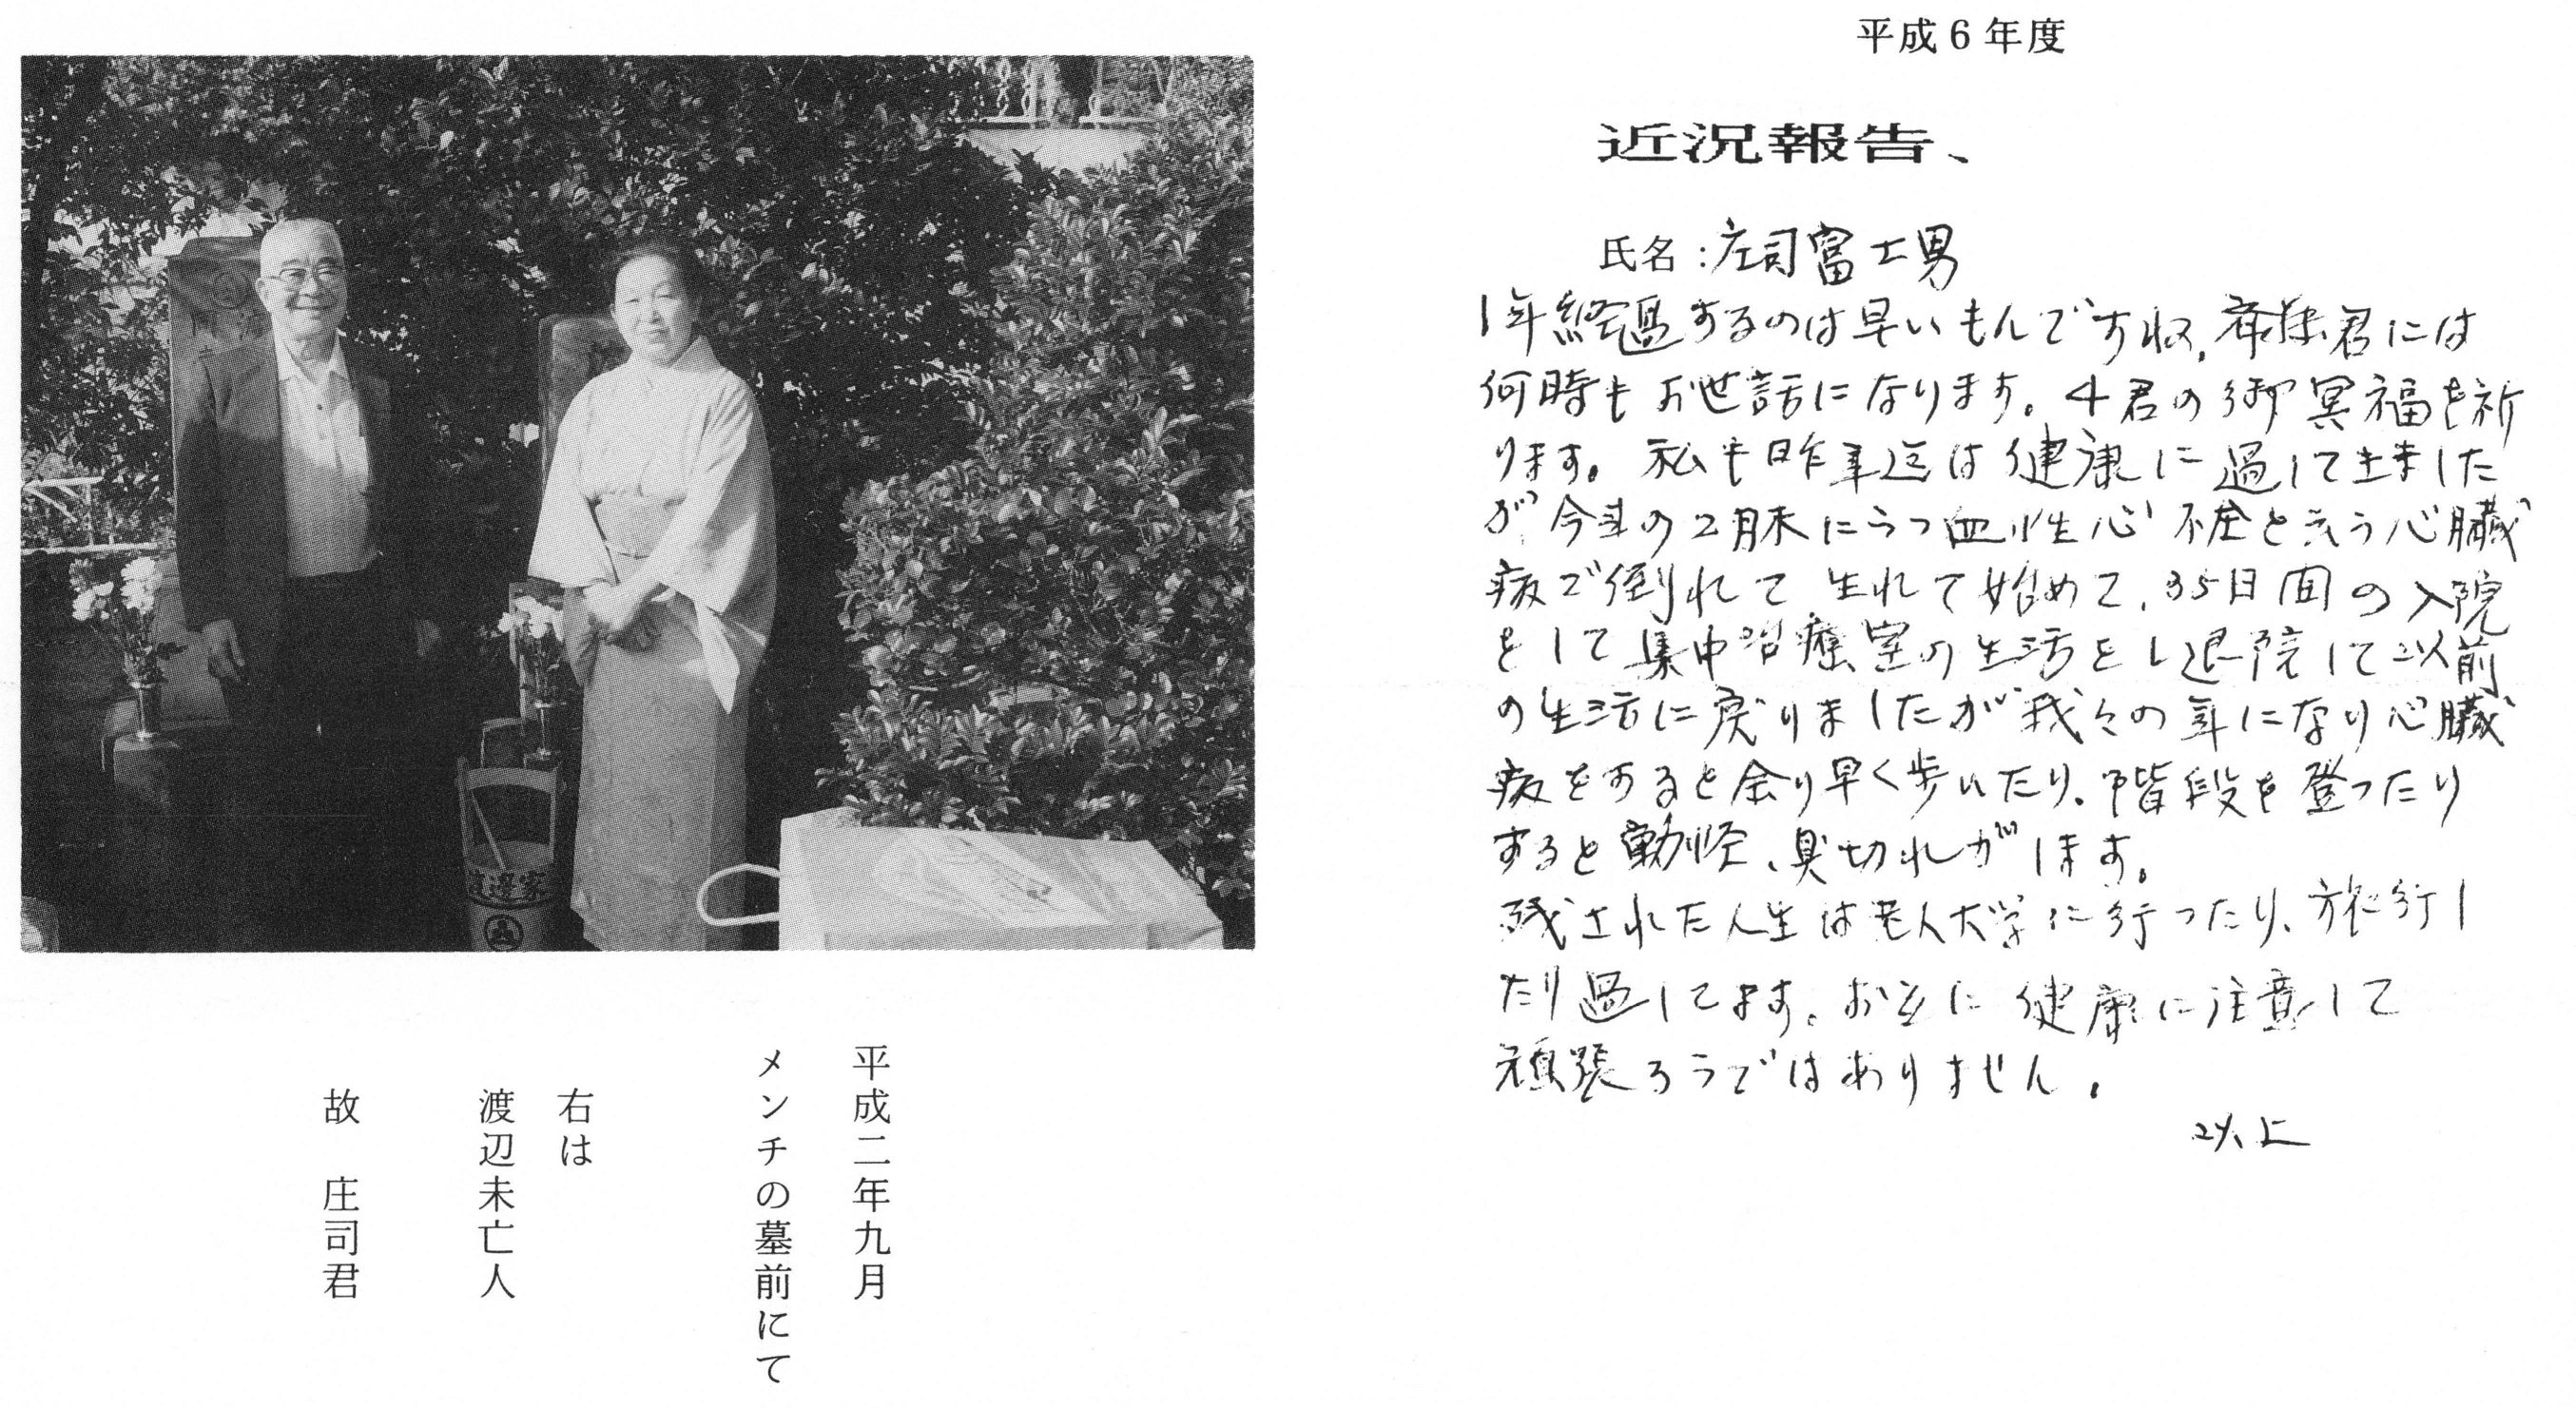 平成6年度
近況報告、
氏名:庄司富士男
1年経過するのは早いもんですね,斉藤君には
何時もお世話になります。4君の御冥福を祈
ります。私も昨年迄は健康に過して来ました
が今年の2月末にうっ血性心不全と云う心臓
病で倒れて生れて始めて、35日間の入院
をして集中治療室の生活をし退院して以前
の生活に戻りましたが我々の年になり心臓
病をすると余り早く歩いたり、階段を登ったり
すると動悸、息切れがします。
残された人生は老人大学に行ったり、旅行し
たり過してます。お互に健康に注意して
頑張ろうではありません。
以上
渡邊家
平成二年九月
メンチの墓前にて
右は
渡辺未亡人
故 庄司君